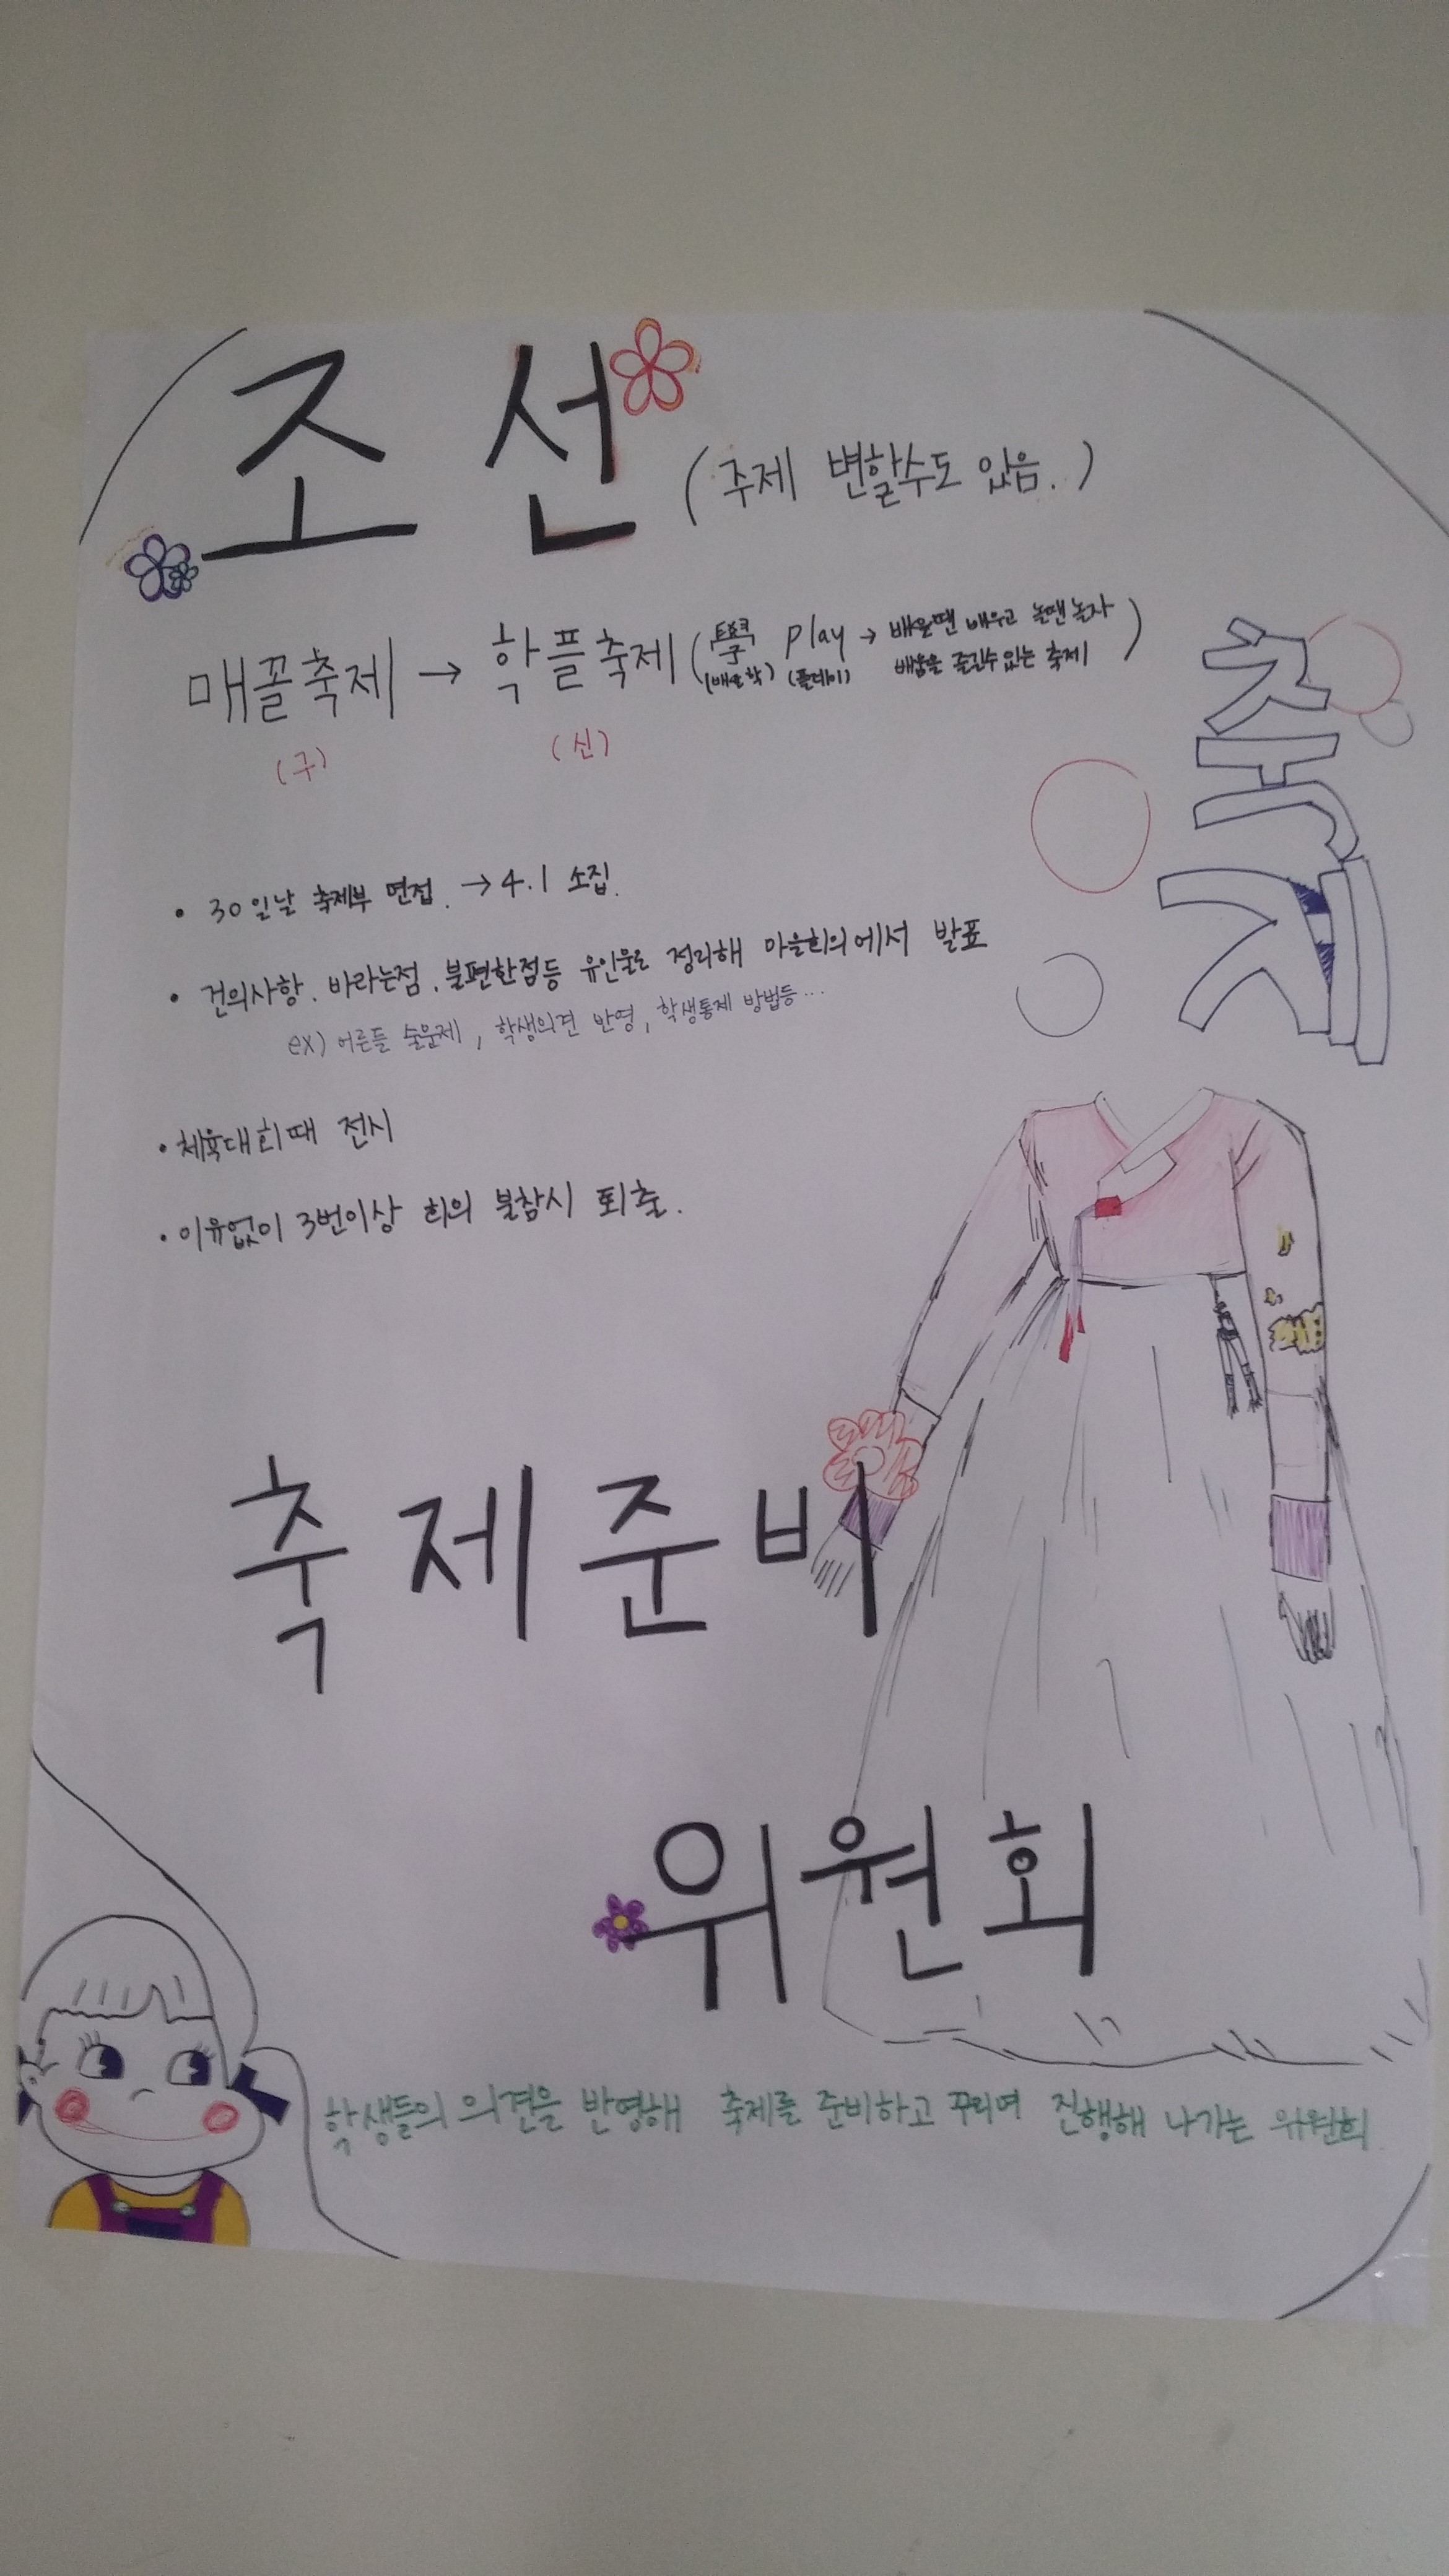 조선 (주제 변할수도 있음.)
매꼴축제 → 학플축제 (學 play → 배울땐 배우고 놀땐놀자
(배울학) (플레이) 배움을 즐길수있는 축제)
(구) (신)
축제
• 30일날 축제부 면접. → 4.1 소집.
• 건의사항. 바라는점. 불편한점등 유인물로 정리해 마을회의에서 발표
ex) 어른들 술문제, 학생의견 반영, 학생통제 방법등...
• 체육대회때 전시
• 이유없이 3번이상 회의 불참시 퇴출.
축제준비
위원회
학생들의 의견을 반영해 축제를 준비하고 꾸리며 진행해 나가는 위원회